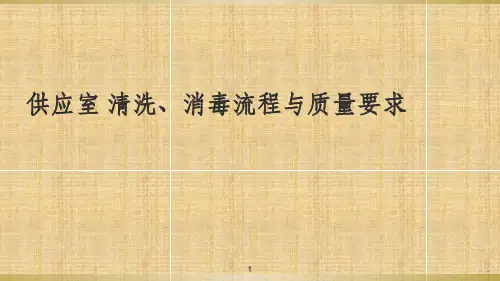 供应室 清洗、消毒流程与质量要求
1